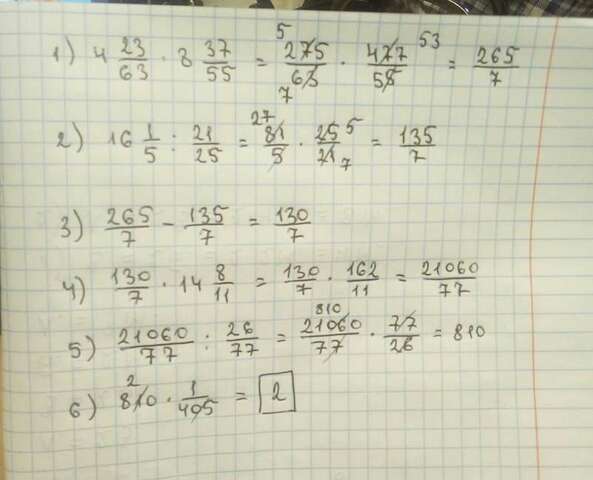 1) 4 23/63 · 8 37/55 = 275/63 5 7 · 477/55 53 = 265/7
2) 16 1/5 : 21/25 = 81/5 27 · 25/21 5 7 = 135/7
3) 265/7 - 135/7 = 130/7
4) 130/7 · 14 8/11 = 130/7 · 162/11 = 21060/77
5) 21060/77 : 26/77 = 21060/77 810 · 77/26 = 810
6) 810 2 · 1/405 = 2